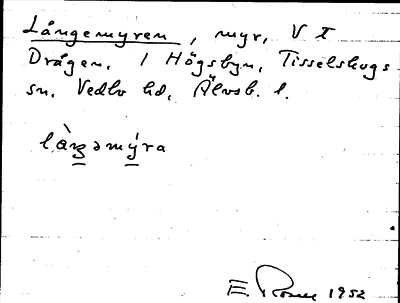 Långemyren, myr, V t
Drågen. 1 Högsbyn, Tisselskogs
sn. Vedbo hd, Älvsb. l.
làŋəmýra
E. 1952